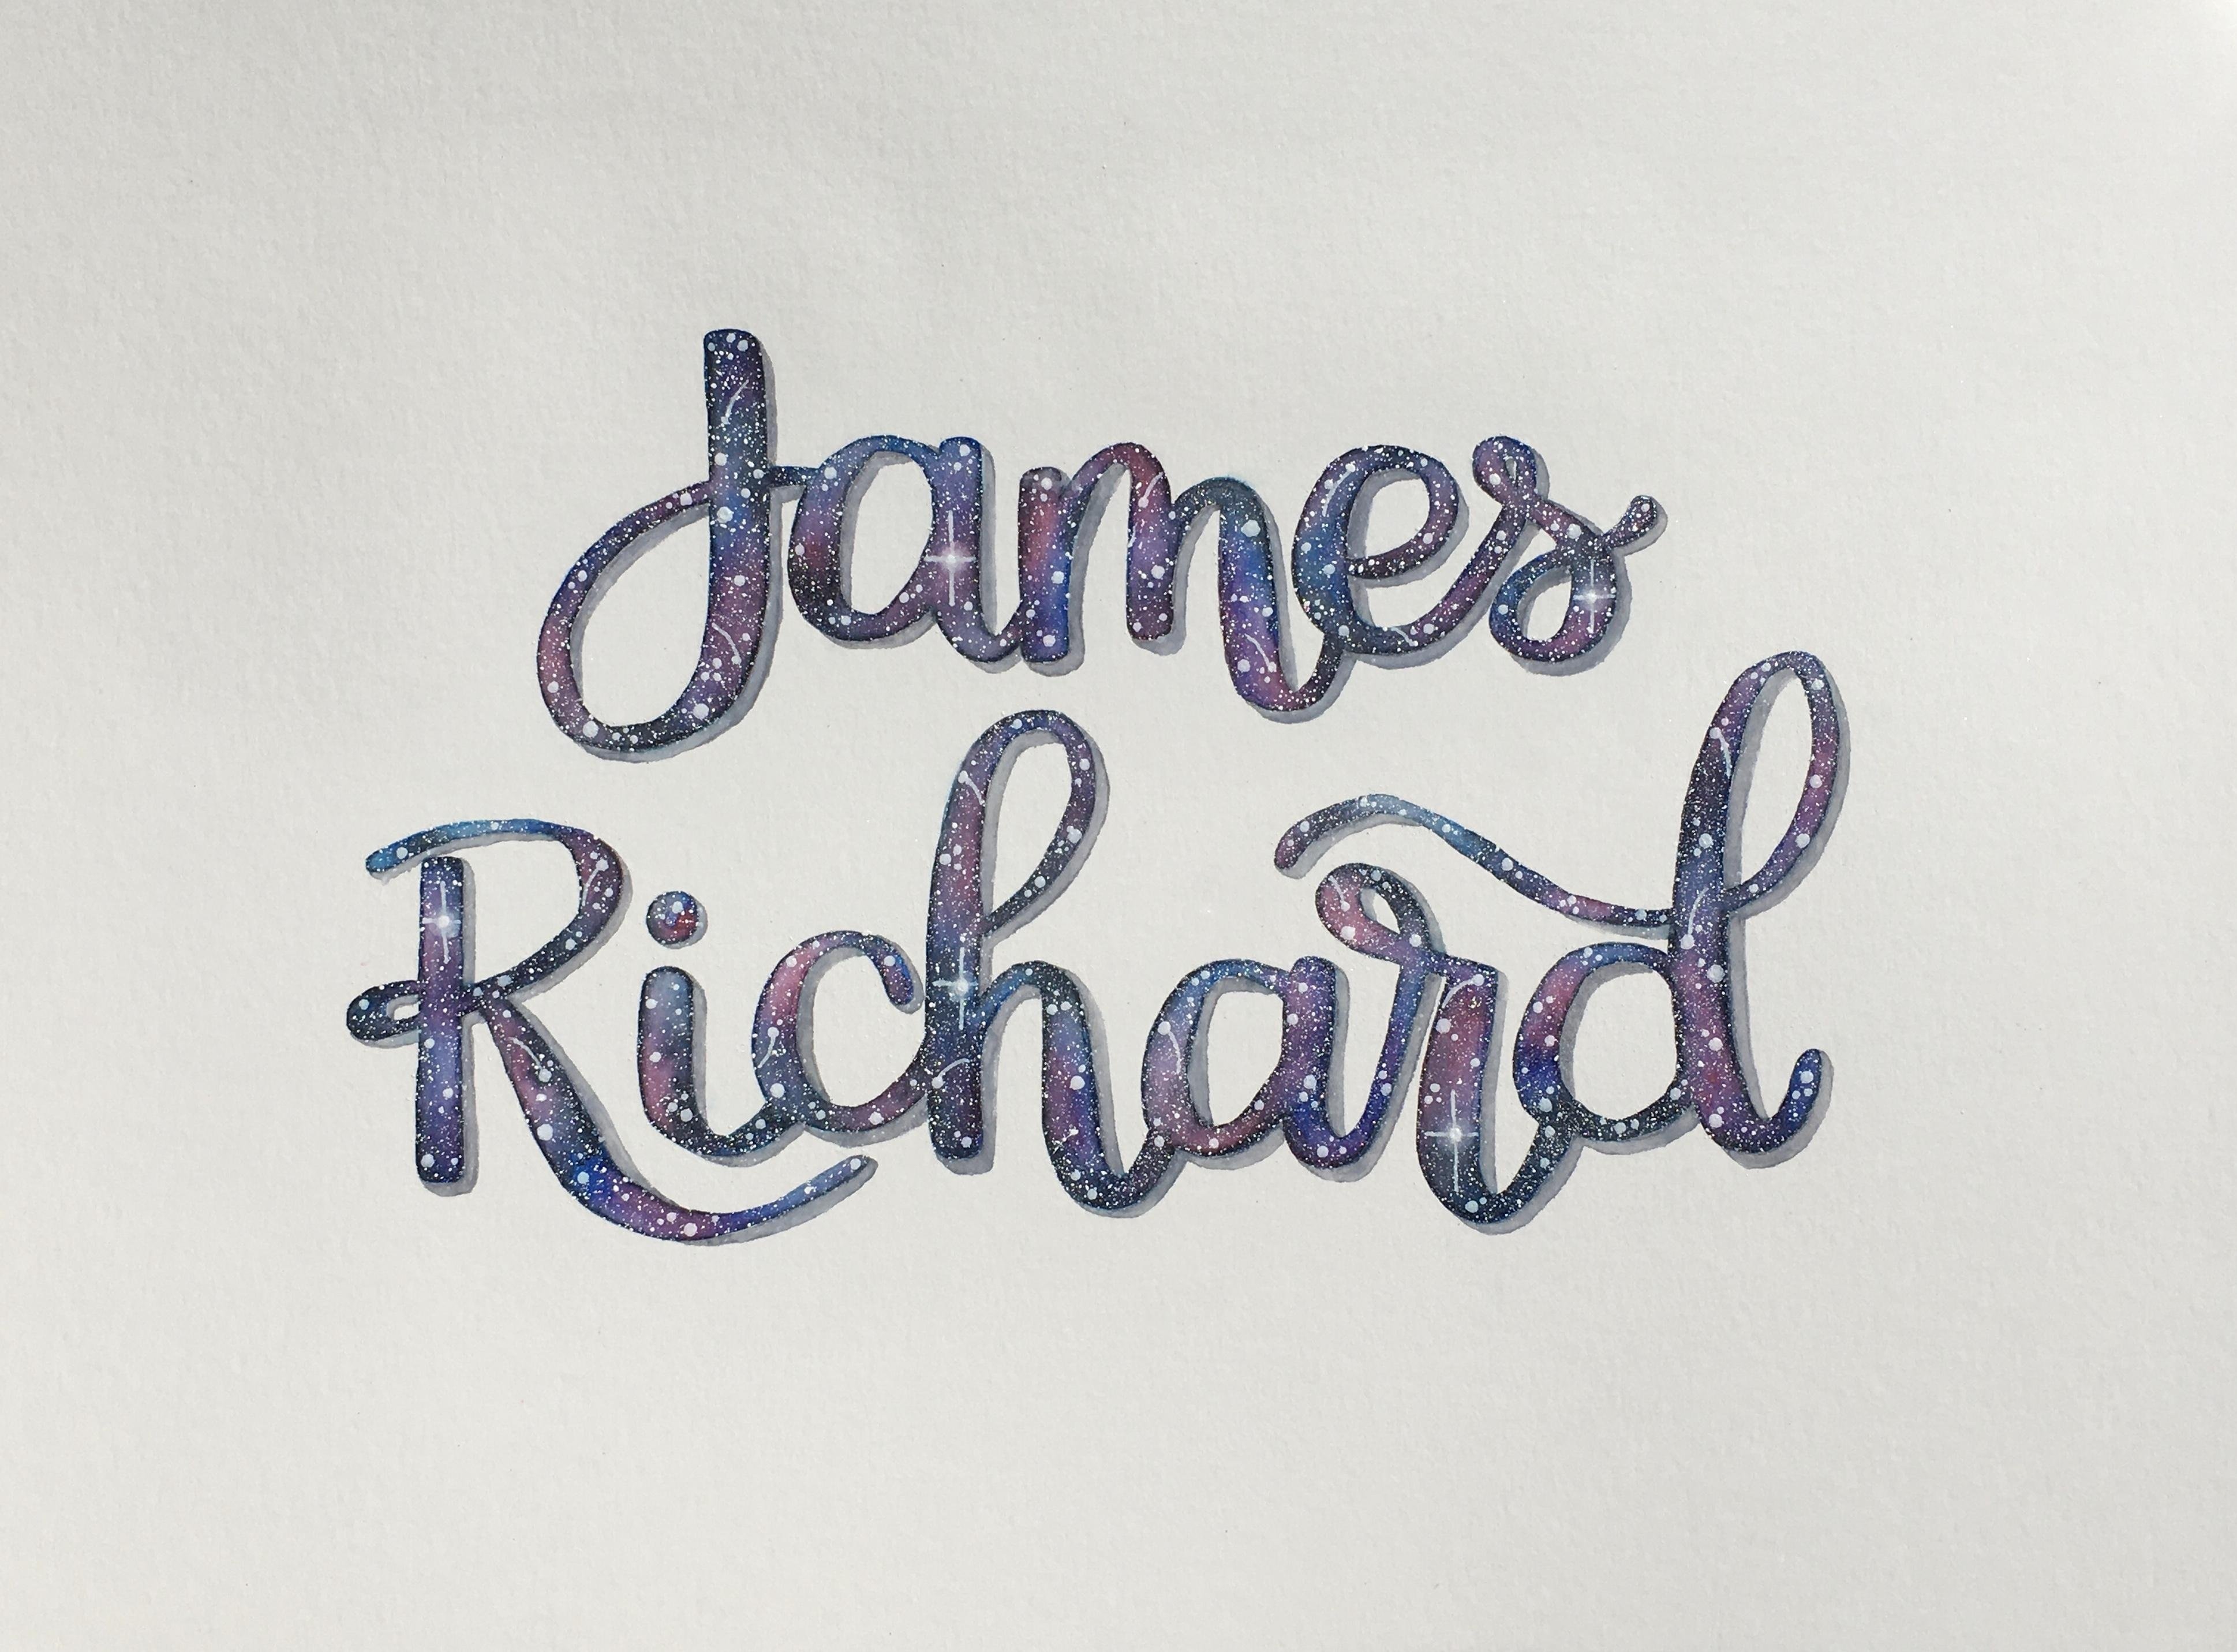 James
Richard